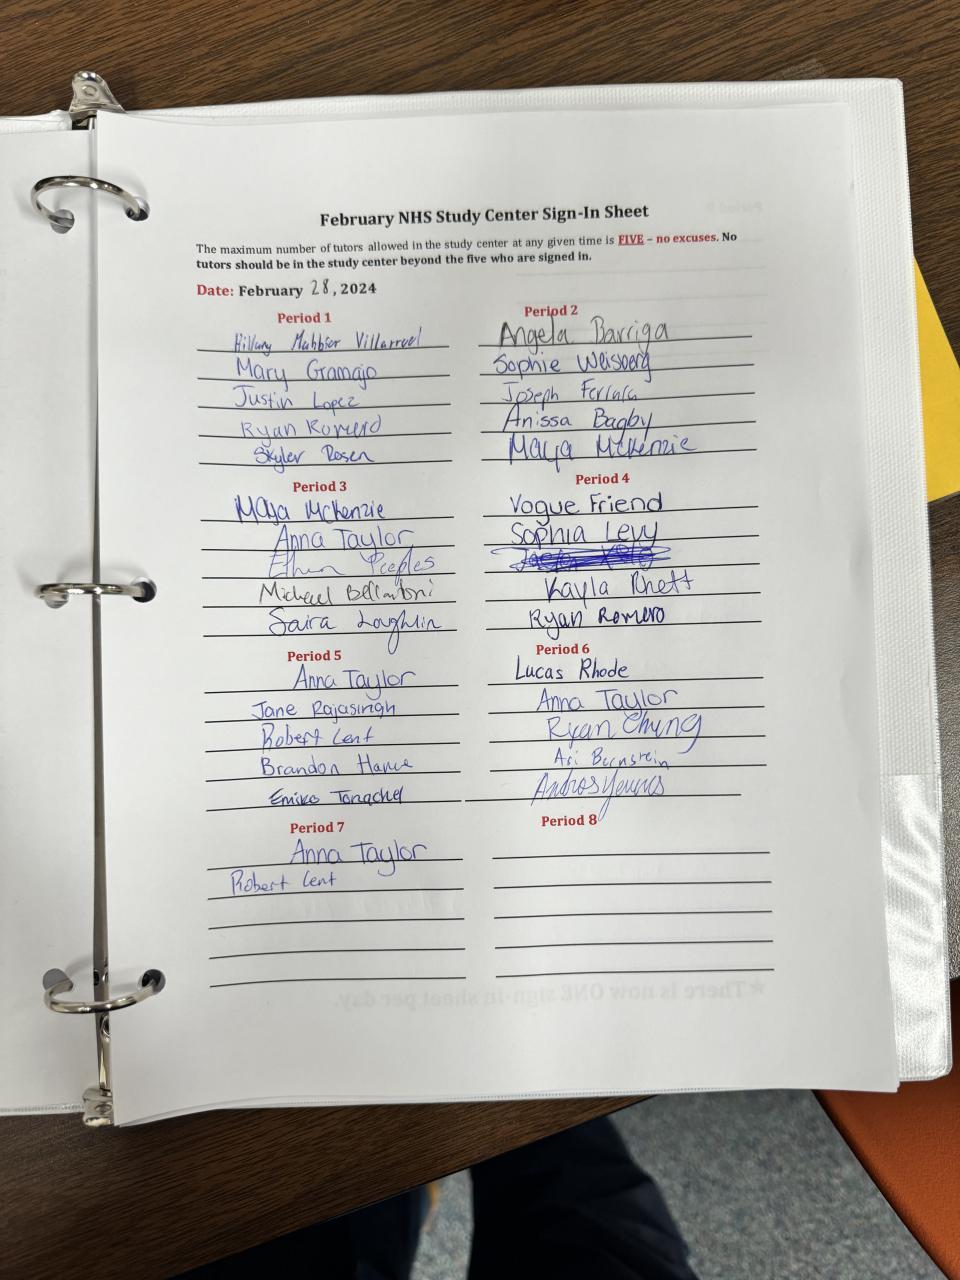 February NHS Study Center Sign-In Sheet
The maximum number of tutors allowed in the study center at any given time is FIVE – no excuses. No
tutors should be in the study center beyond the five who are signed in.
Date: February 28, 2024
Period 1
Hillary Villarruel
Mary Gramajo
Justin Lopez
Ryan Romero
Skyler Rosen
Period 2
Angela Barriga
Sophie Weisberg
Joseph
Anissa Bagby
Maya McKenzie
Period 3
Maya McKenzie
Anna Taylor
Ethan Peeples
Michael Bellantoni
Saira Loughlin
Period 4
Vogue Friend
Sophia Levy
Kayla Rhett
Ryan Romero
Period 5
Anna Taylor
Jane Rajasingh
Robert Lent
Brandon
Emiko
Period 6
Lucas Rhode
Anna Taylor
Ryan Chung
Ari Bernstein
Andros
Period 7
Anna Taylor
Robert Lent
Period 8
★There is now ONE sign-in sheet per day.